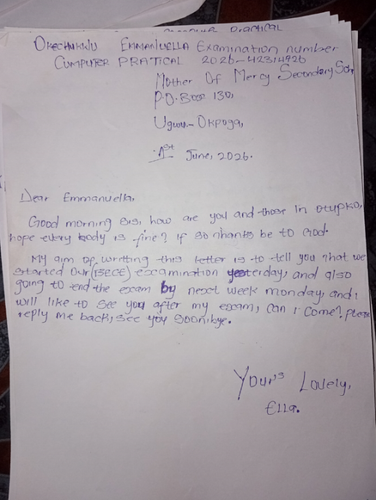 Okechukwu Emmanuella Examination number
Computer Pratical 2026-
Mother Of Mercy Secondary Sch
P.O.Box 130,
Ugwu-Okpoga,
1st June, 2026.
Dear Emmanuella.
Good morning sis, how are you and those in otupko,
hope every body is fine? if so thanks be to God.
My aim of writting this letter is to tell you that we
started our examination yesterday, and also
going to end the exam by next week monday, and i
will like to see you after my exam, can i come? please
reply me back, see you soon bye.
Your's Lovely,
Ella.